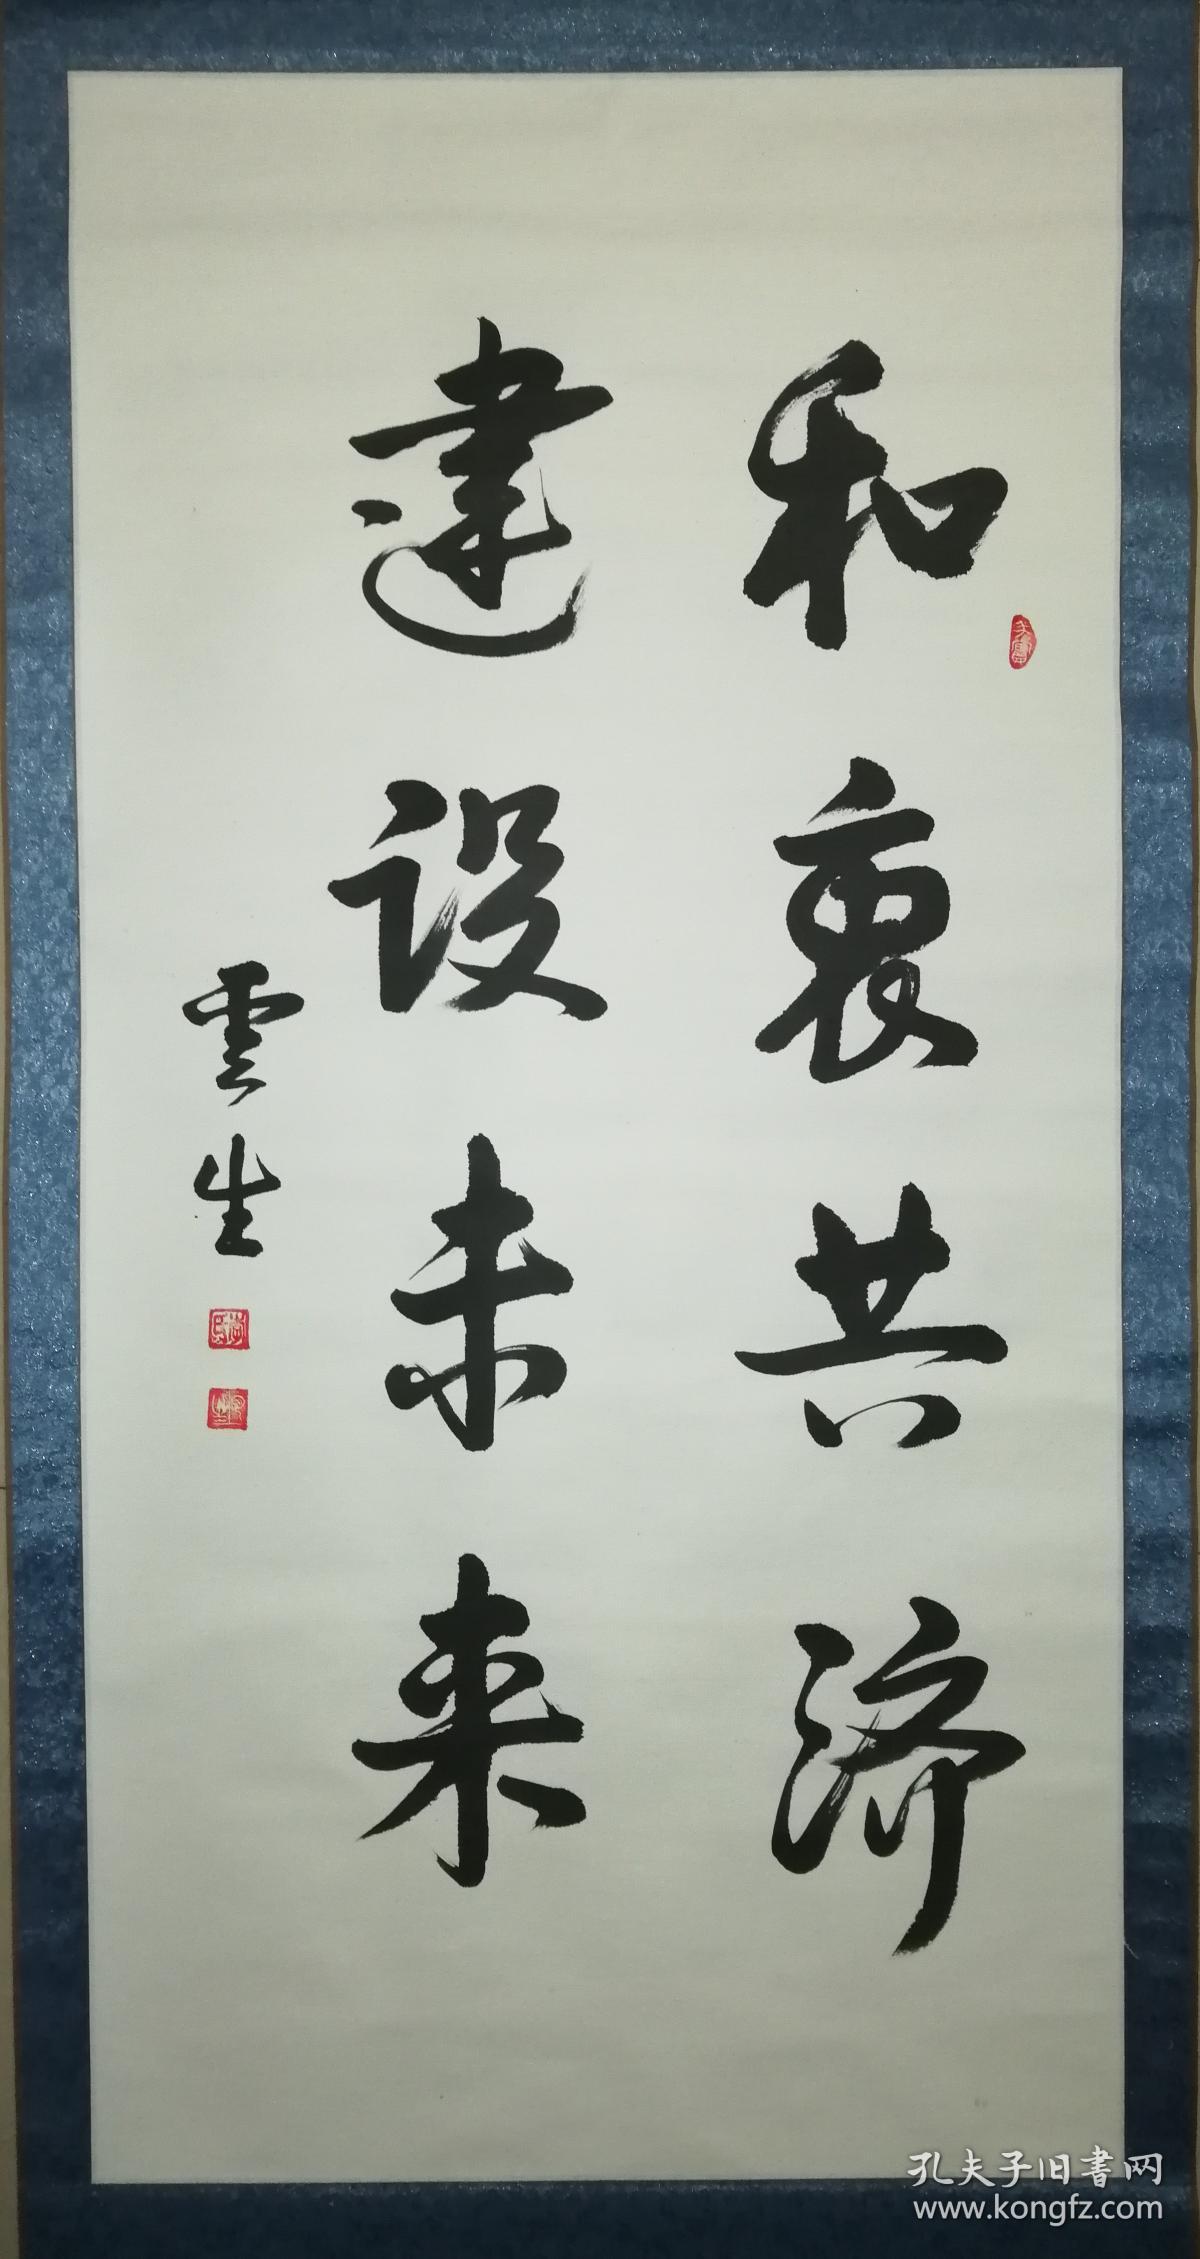 和衷共济
建设未来
雲生
孔夫子旧書网
www.kongfz.com